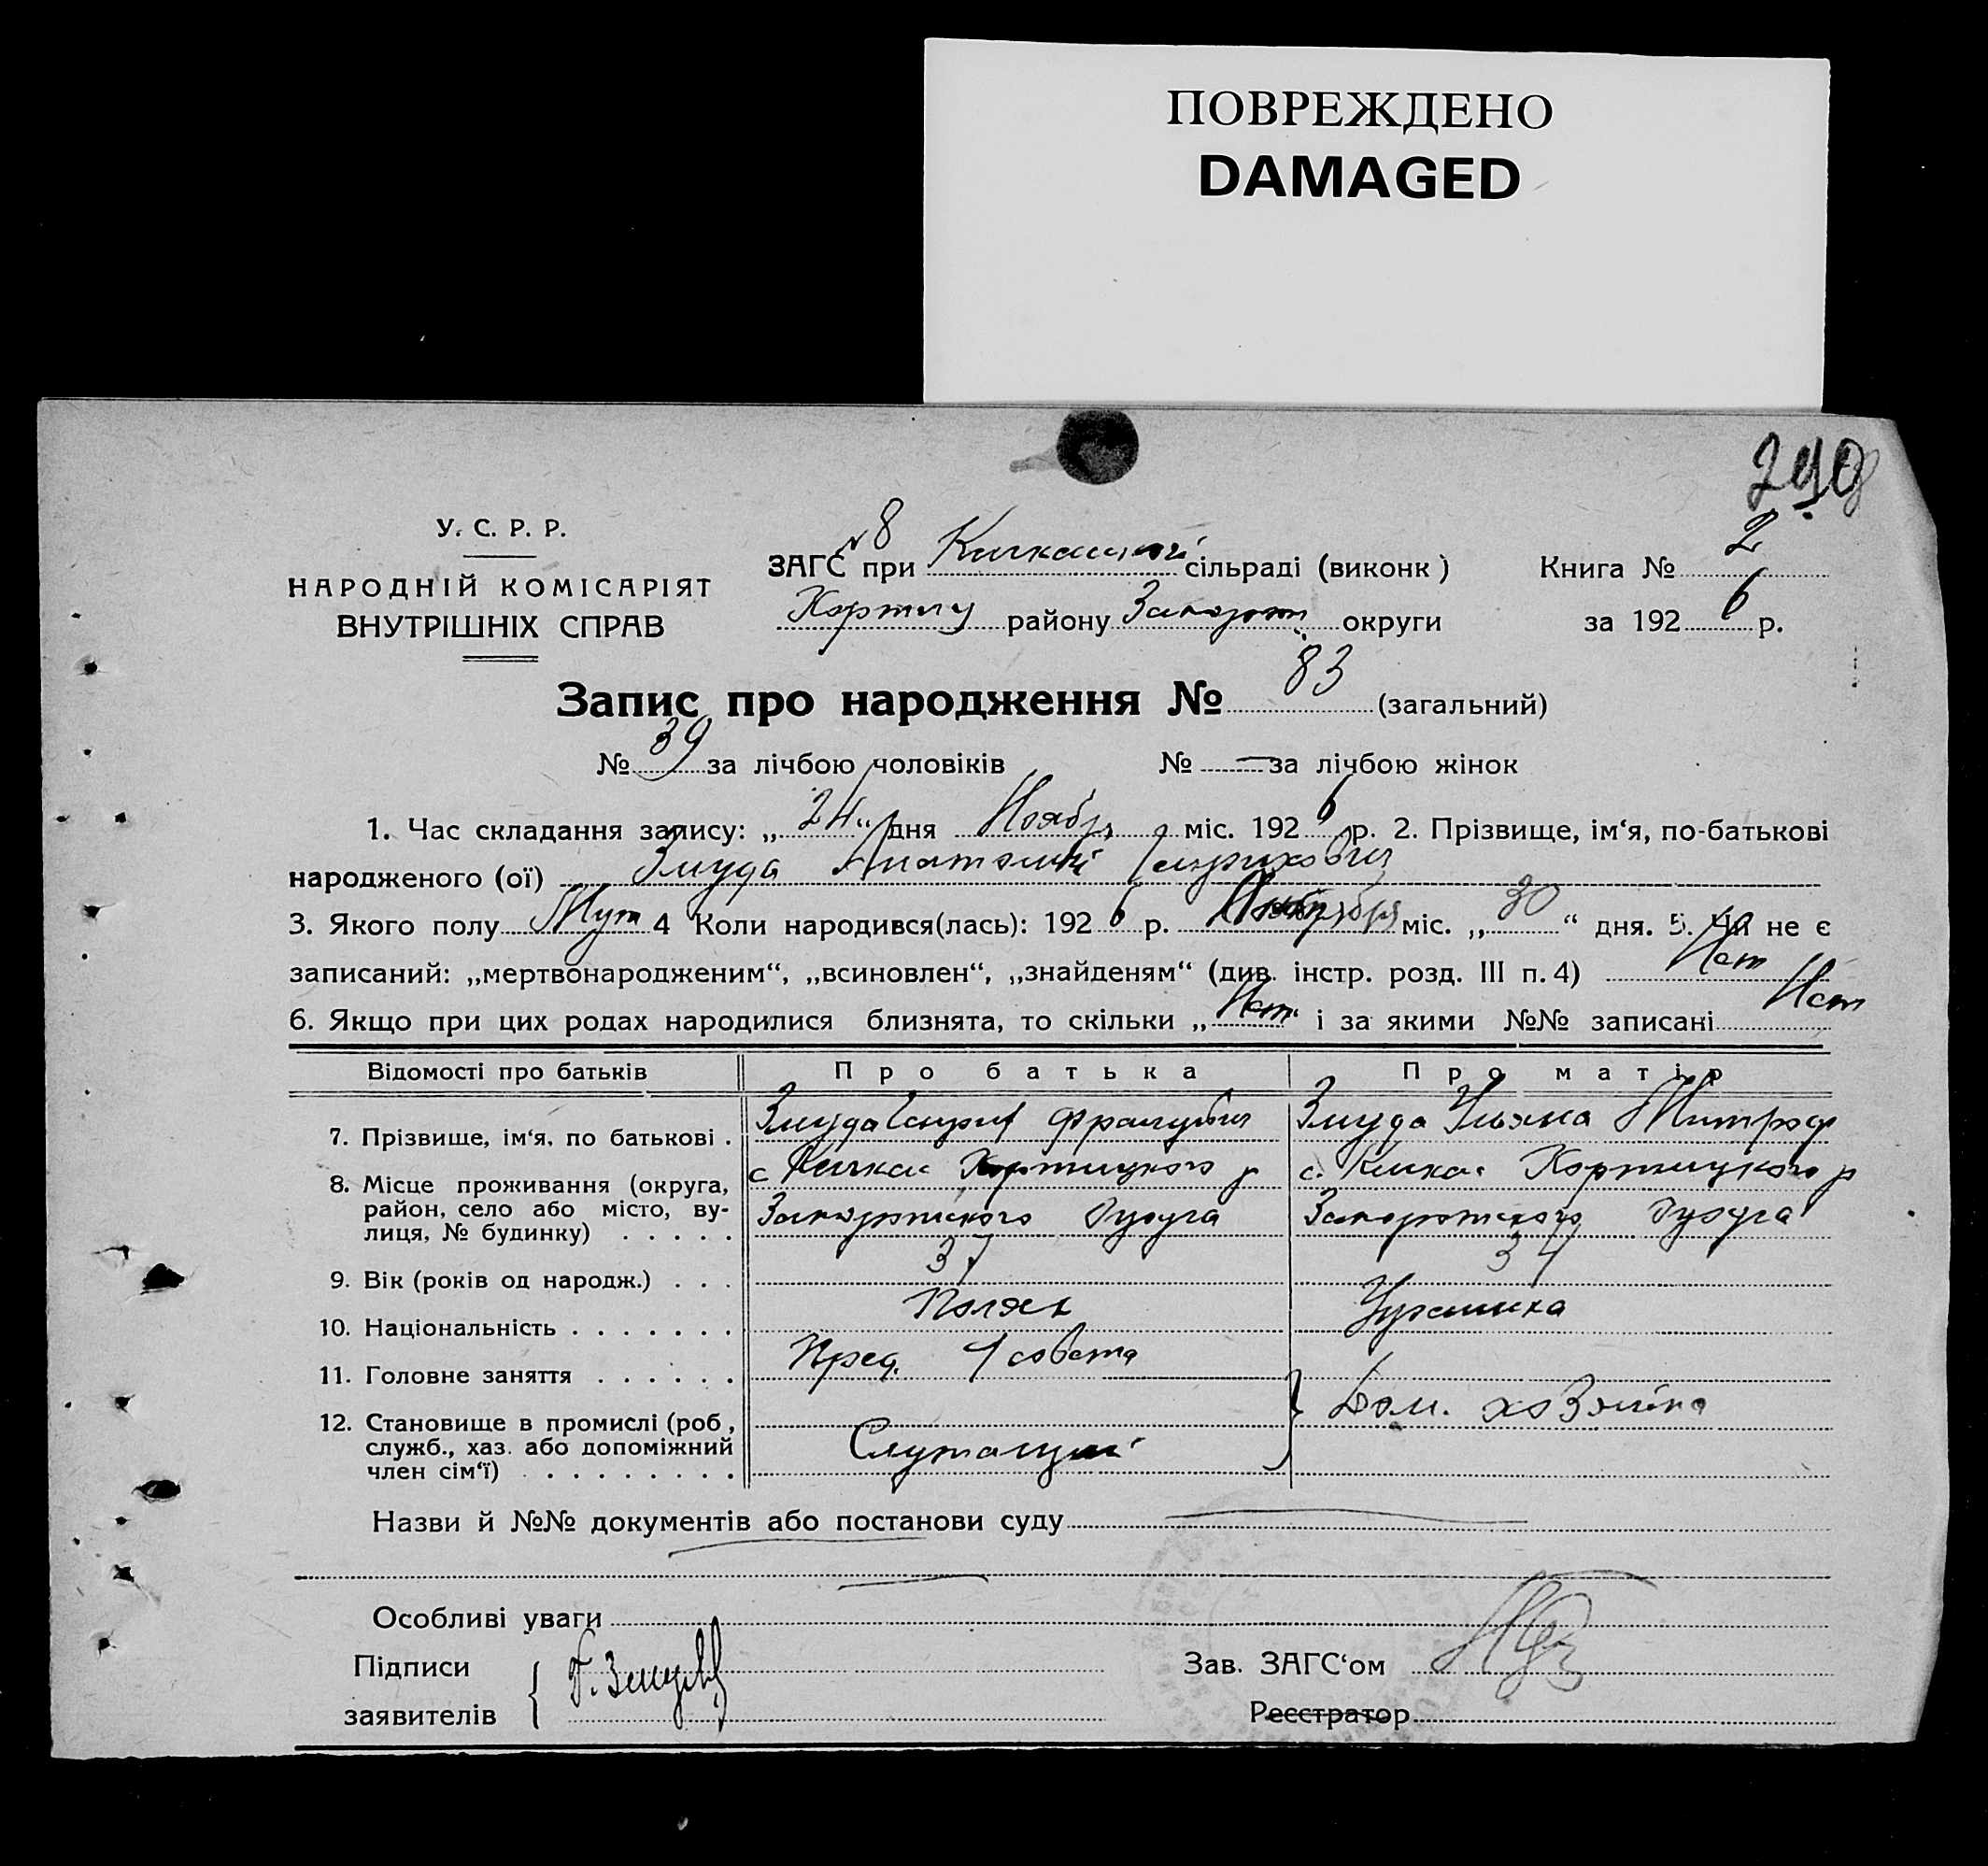 ПОВРЕЖДЕНО
DAMAGED
2
У. С. Р. Р.
НАРОДНІЙ КОМІСАРІЯТ
ВНУТРІШНІХ СПРАВ
№ 8
ЗАГС при Кичкаській сільраді (виконк )
Книга № 2
Хортиц району Запорож округи
за 1926 р.
Запис про народження № 83 (загальний)
№ 39 за лічбою чоловіків № — за лічбою жінок
1. Час складання запису: „24“ дня Ноября міс. 1926 р. 2. Прізвище, ім'я, по-батькові
народженого (ої) Змуда Анатолий Генрихович
3. Якого полу Муж 4 Коли народився(лась): 1926 р. міс. „30“ дня. 5. Чи не є
записаний: „мертвонародженим“, „всиновлен“, „знайденям“ (див. інстр. розд. III п. 4) Нет
6. Якщо при цих родах народилися близнята, то скільки „Нет“ і за якими №№ записані Нет
Відомості про батьків Про батька Про матір
7. Прізвище, ім'я, по батькові . Змуда Генрих Францович Змуда Ульяна Митроф
8. Місце проживання (округа, район, село або місто, вулиця, № будинку) . . . . . с Кичкас Хортицкого р Запорожского Округа с. Кичкас Хортицкого р Запорожского Округа
9. Вік (років од народж.) . . . 37 34
10. Національність . . . . . . . Поляк Украинка
11. Головне заняття . . . . . . Пред. совета Дом. хозяйка
12. Становище в промислі (роб , служб., хаз. або допоміжний член сім'ї) . . . . . . . . . Служащий
Назви й №№ документів або постанови суду —
Особливі уваги
Підписи
заявителів
Г. Змуда
Зав. ЗАГС'ом
Реєстратор